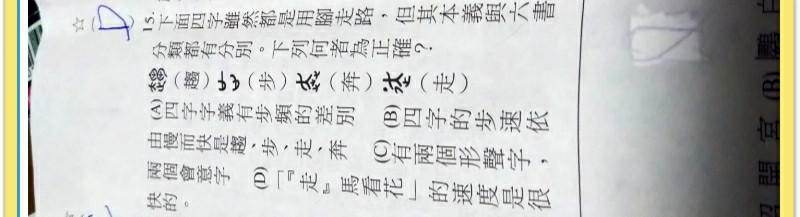 15. 下面四字雖然都是用腳走路，但其本義與六書
分類都有分別。下列何者為正確？
（趨）（步）（奔）（走）
(A)四字字義有步頻的差別 (B)四字的步速依
由慢而快是趨、步、走、奔 (C)有兩個形聲字，
兩個會意字 (D)「『走』馬看花」的速度是很
快的。
D
開 宮 (B)